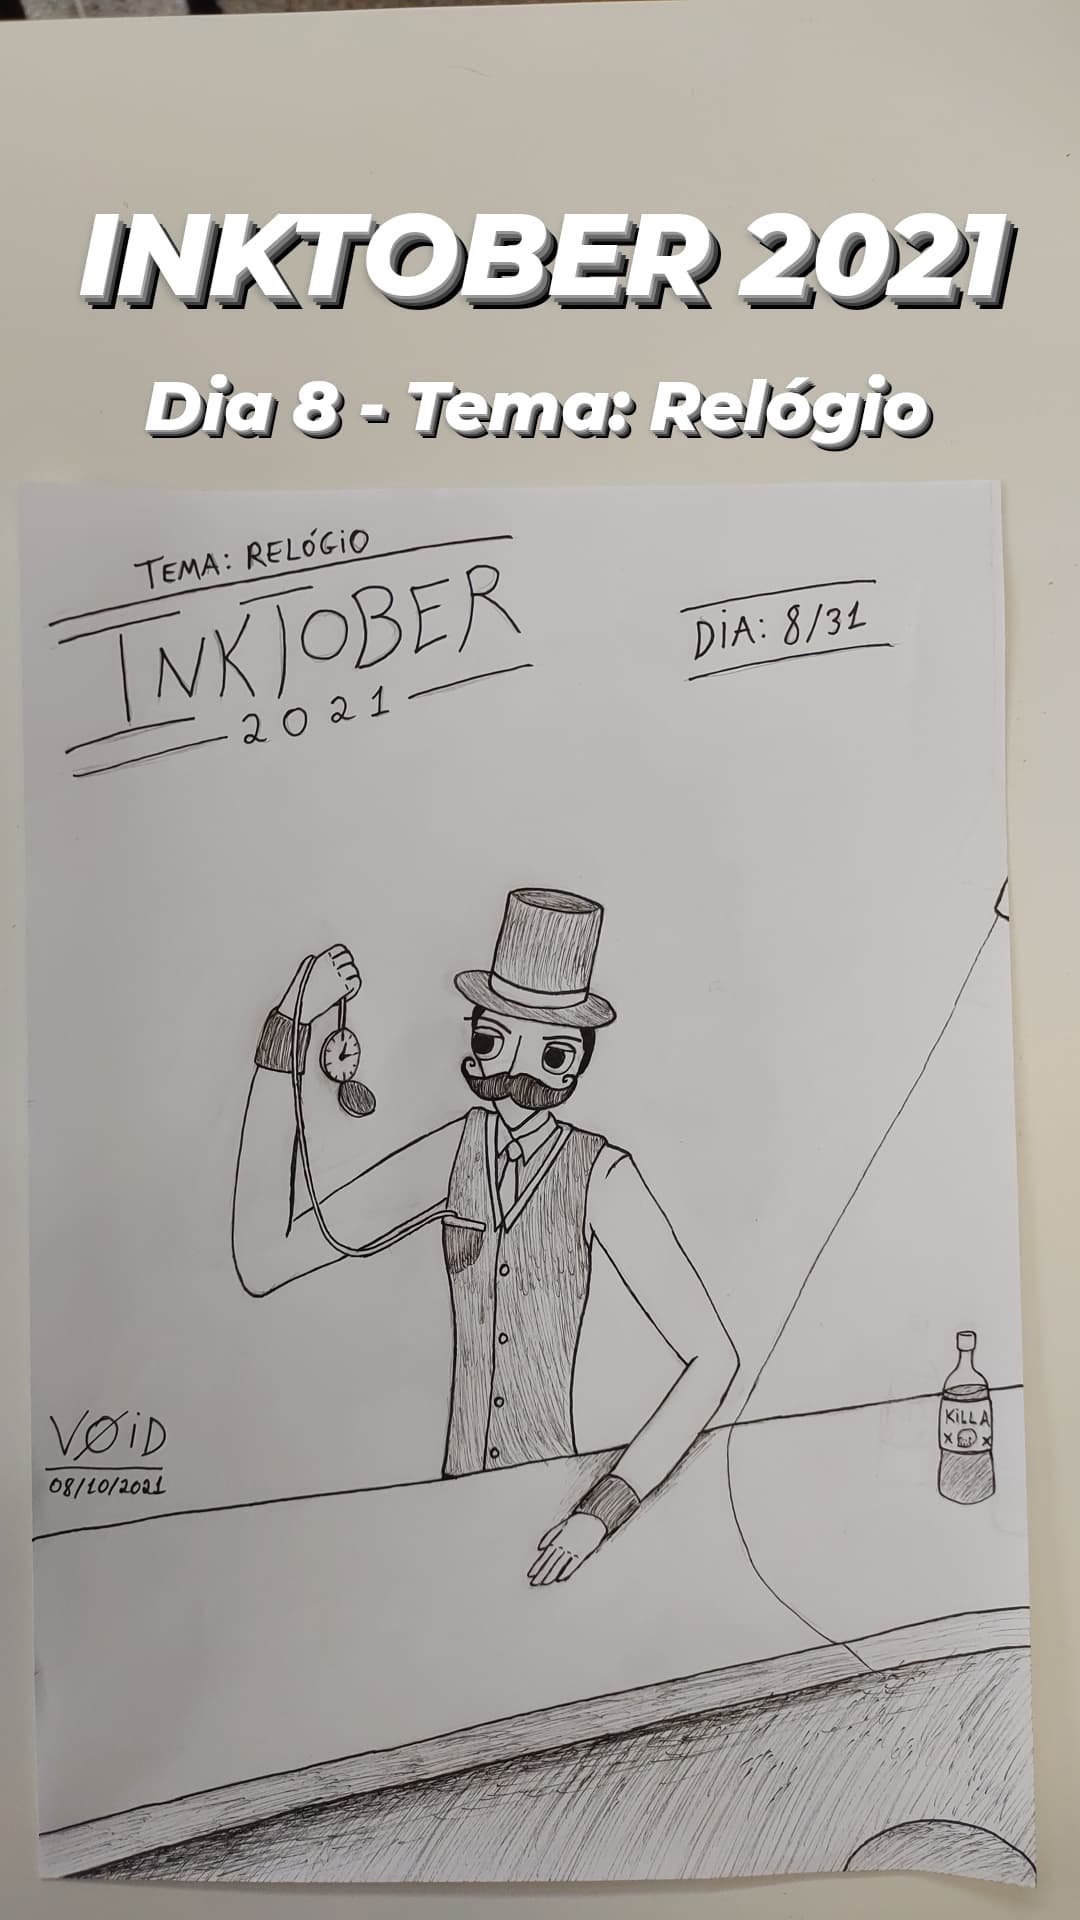 INKTOBER 2021
Dia 8 - Tema: Relógio
TEMA: RELÓGIO
INKTOBER
2021
DIA: 8/31
KILLA
X X
VØID
08/10/2021